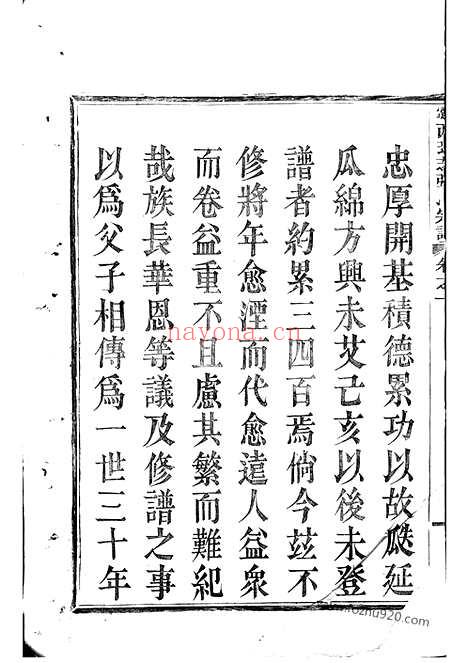 忠厚開基積德累功以故瓞延
瓜綿方興未艾己亥以後未登
譜者約累三四百焉倘今玆不
修將年愈湮而代愈遠人益衆
而卷益重不且慮其繁而難紀
哉族長華恩等議及修譜之事
以爲父子相傳爲一世三十年
nayona.cn